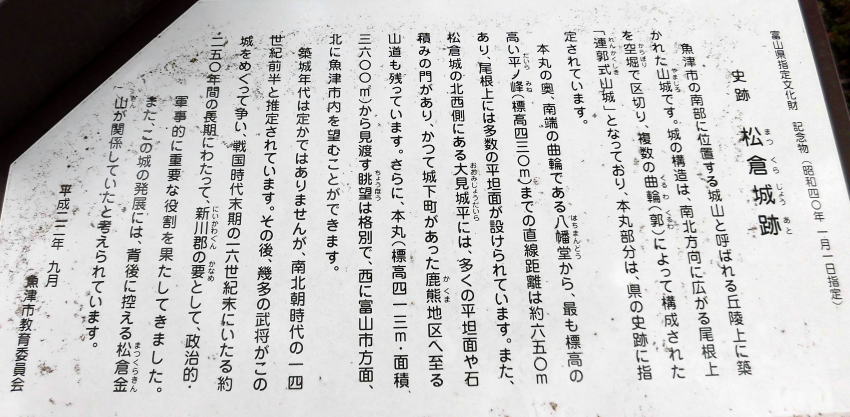 富山県指定文化財　記念物(昭和四〇年 一月一日指定)
史跡　松倉城跡
まつ くら じょう あと
魚津市の南部に位置する城山と呼ばれる丘陵上に築
かれた山城です。城の構造は、南北方向に広がる尾根上
やまじろ
を空堀で区切り、複数の曲輪(郭)によって構成された
からぼり くるわ くるわ
「連郭式山城」となっており、本丸部分は、県の史跡に指
れんかくしき
定されています。
本丸の奥、南端の曲輪である八幡堂から、最も標高の
はちまんどう
高い平ノ峰(標高四三〇m)までの直線距離は約六五〇m
たいら みね
あり、尾根上には多数の平坦面が設けられています。また、
松倉城の北西側にある大見城平には、多くの平坦面や石
おおみじょうだいら
積みの門があり、かつて城下町があった鹿熊地区へ至る
かくま
山道も残っています。さらに、本丸(標高四一三m・面積
三六〇〇㎡)から見渡す眺望は格別で、西に富山市方面、
ちょうぼう
北に魚津市内を望むことができます。
築城年代は定かではありませんが、南北朝時代の一四
世紀前半と推定されています。その後、幾多の武将がこの
城をめぐって争い、戦国時代末期の一六世紀末にいたる約
二五〇年間の長期にわたって、新川郡の要として、政治的・
にいかわぐん かなめ
軍事的に重要な役割を果たしてきました。
また、この城の発展には、背後に控える松倉金
まつくらきん
山が関係していたと考えられています。
ざん
平成二二年 九月
魚津市教育委員会